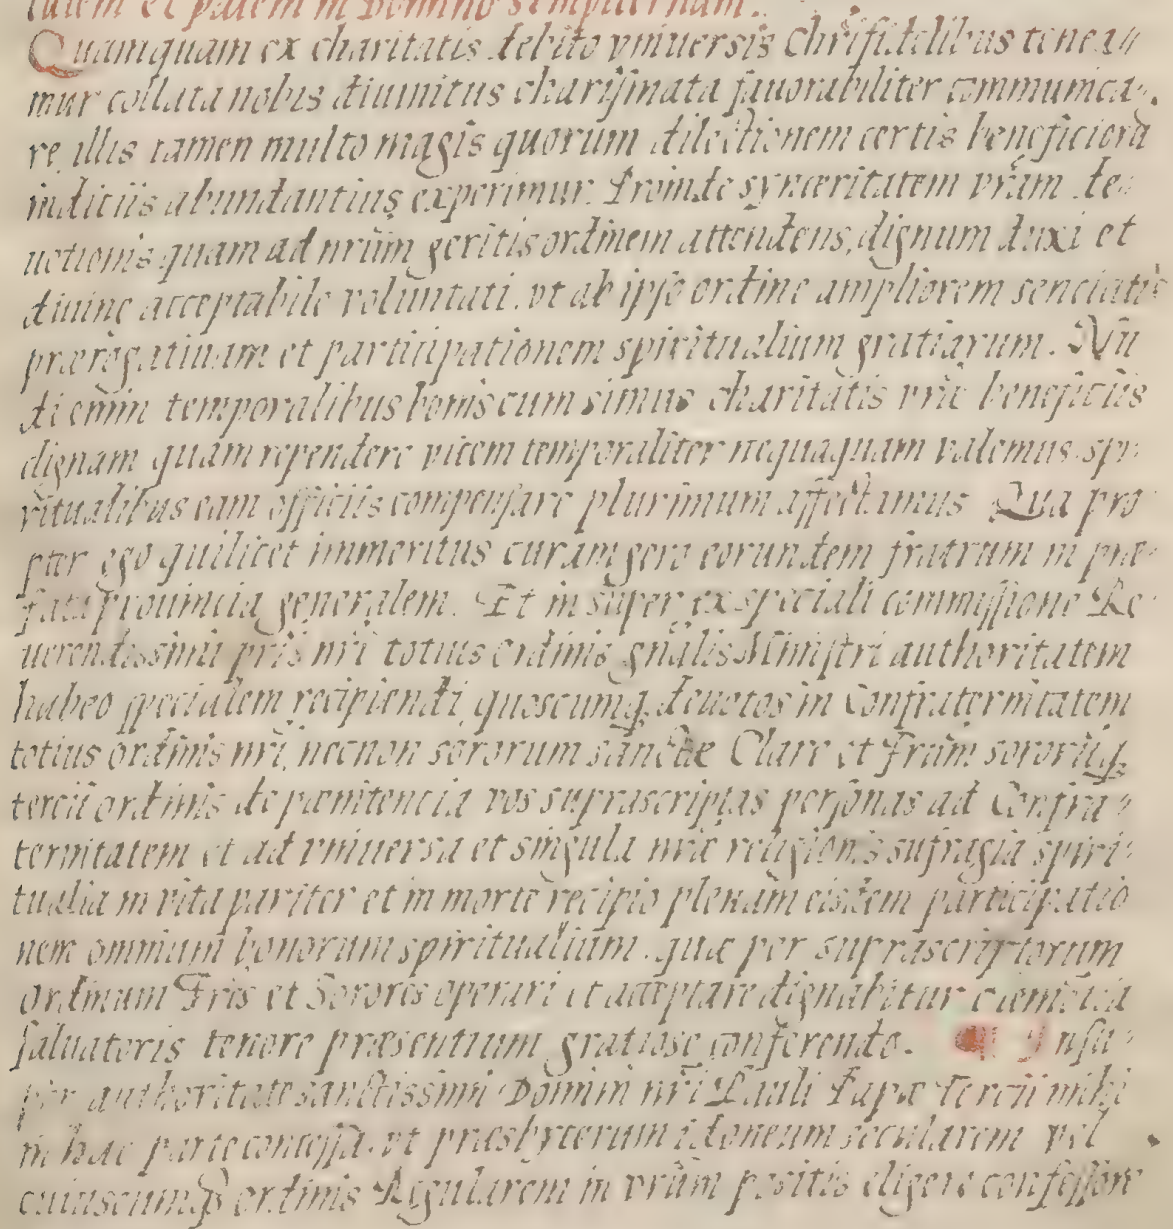 lutem et pacem in Domino sempiternam.
Quamquam ex charitatis debito vniuersis Chr̃ifidelibus tenea⸗
mur collata nobis diuinitus charismata fauorabiliter communica⸗
re, illis tamen multo magis quorum dilectionem certis beneficiorũ
indiciis abundantius experimur. Proinde synceritatem vr̃am de⸗
uotionis quam ad nr̃um geritis ordinem attendens, dignum duxi et
diuine acceptabile voluntati. vt ab ipso ordine ampliorem senciatis
prærogatiuam et participationem spiritualium gratiarum. Nũ
di enim temporalibus bonis cum simus charitatis vr̃e beneficiis
dignam quam rependere vicem temporaliter nequaquam valemus. spi⸗
ritualibus eam officiis compensare plurimum affectamus Qua pro
pter ego qui licet immeritus curam gero eorundem fratrum in præ⸗
fata prouincia generalem. Et in super, ex speciali commissione Re⸗
uerendissimi pr̃is nr̃i totius ordinis gñalis Ministri authoritatem
habeo specialem recipiendi quoscumq; deuotos in Confraternitatem
totius ordinis nr̃i, necnon sororum sanctæ Clare et fratrũm sororũq;
tercii ordinis de pœnitencia vos suprascriptas personas ad Confra⸗
ternitatem et ad vniuersa et singula nr̃æ religionis sufragia spiri⸗
tualia in vita pariter et in morte recipio plenam eisdem participatio
nem omnium bonorum spiritualium. quæ per suprascriptorum
ordinum Fr̃es et Sorores operari et acceptare dignabitur clemẽtia
saluatoris tenore præsentium gratiose conferendo. Insu⸗
per authoritate sanctissimi Domini nr̃i Pauli Papæ Tercii mihi
in hac parte concessa. vt præsbyterum idoneum secularem vel
cuiuscumq; ordinis Regularem in vr̃um positis eligere confessore